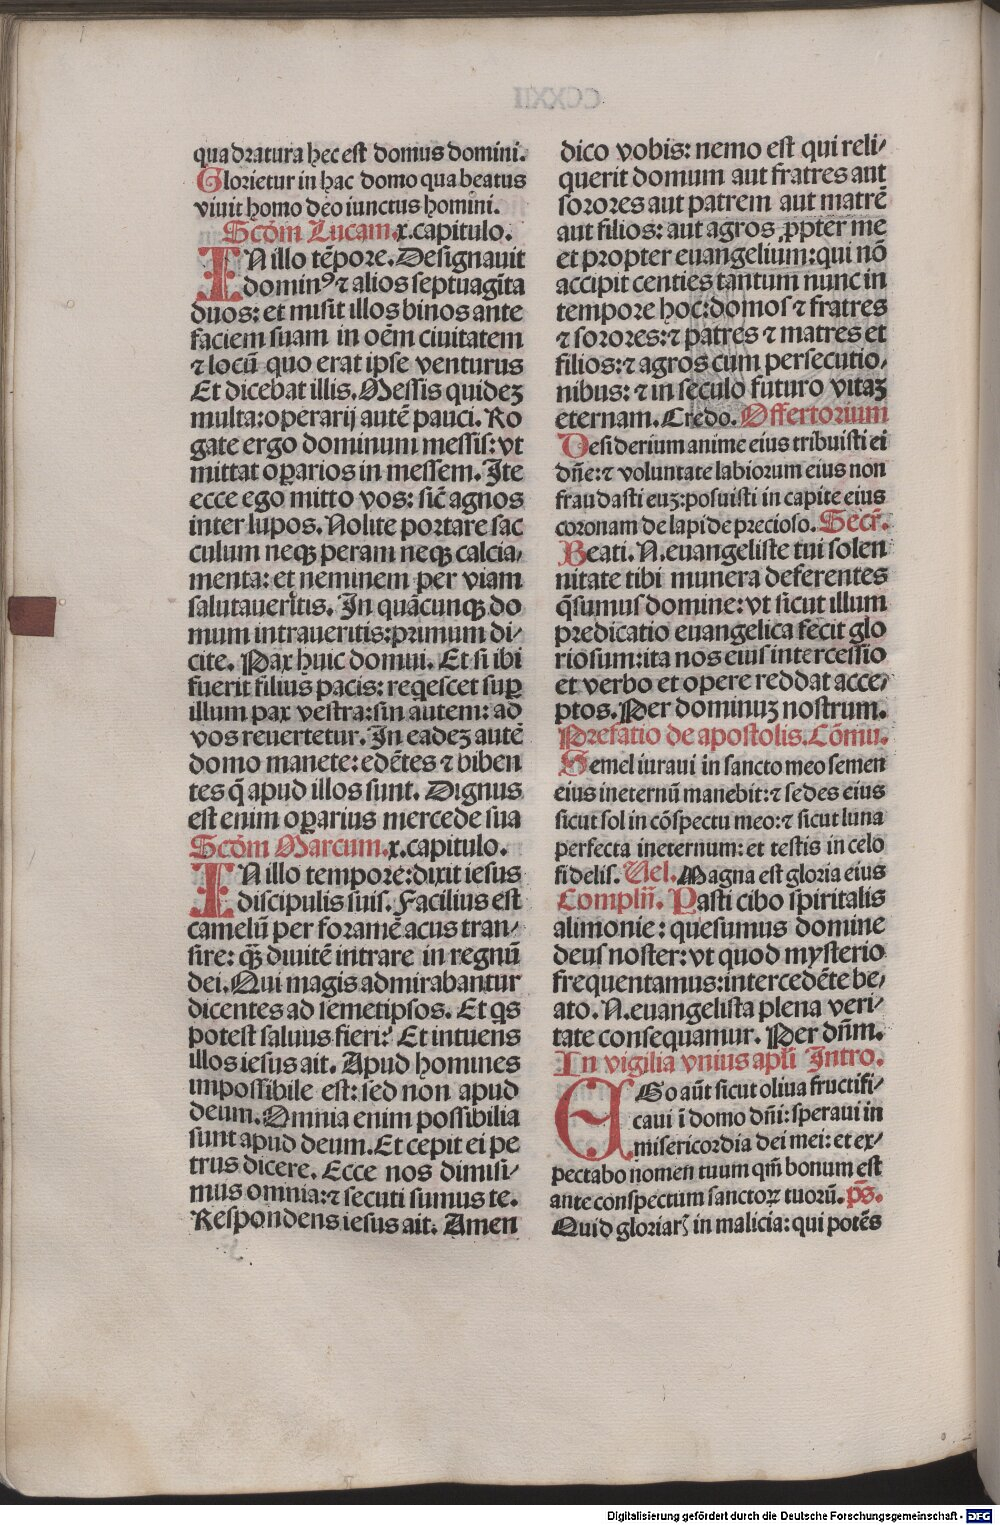 quadratura hec est domus domini.
Glorietur in hac domo qua beatus
viuit homo deo iunctus homini.
Scd̄m Lucam.x.capitulo.
IN illo tēpore. Designauit
dominꝰ ⁊ alios septuagīta
duos: et misit illos binos ante
faciem suam in oēm ciuitatem
⁊ locū quo erat ipse venturus
Et dicebat illis. Messis quideꝫ
multa: operarij autē pauci. Ro
gate ergo dominum messis: vt
mittat oꝑarios in messem. Ite
ecce ego mitto vos: sic̄ agnos
inter lupos. Nolite portare sac
culum neqꝫ peram neqꝫ calcia⸗
menta: et neminem per viam
salutaueritis. In quācunqꝫ do
mum intraueritis: primum di⸗
cite. Pax huic domui. Et si ibi
fuerit filius pacis: reqͥescet suꝑ
illum pax vestra: sin autem: ad
vos reuertetur. In eadeꝫ autē
domo manete: edētes ⁊ biben
tes q̄ apud illos sunt. Dignus
est enim oꝑarius mercede sua
Scd̄m Marcum.x.capitulo.
IN illo tempore: dixit iesus
discipulis suis. Facilius est
camelū per foramē acus tran⸗
sire: qꝫ̄ diuitē intrare in regnū
dei. Qui magis admirabantur
dicentes ad semetipsos. Et qͥs
potest saluus fieri? Et intuens
illos iesus ait. Apud homines
impossibile est: sed non apud
deum. Omnia enim possibilia
sunt apud deum. Et cepit ei pe
trus dicere. Ecce nos dimisi⸗
mus omnia: ⁊ secuti sumus te.
Respondens iesus ait. Amen
dico vobis: nemo est qui reli⸗
querit domum aut fratres aut
sorores aut patrem aut matrē
aut filios: aut agros ꝓpter me
et propter euangelium: qui nō
accipit centies tantum nunc in
tempore hoc: domos ⁊ fratres
⁊ sorores: ⁊ patres ⁊ matres et
filios: ⁊ agros cum persecutio⸗
nibus: ⁊ in seculo futuro vitaꝫ
eternam. Credo. Offertorium
Desiderium anime eius tribuisti ei
dn̄e: ⁊ voluntate labiorum eius non
fraudasti euꝫ: posuisti in capite eius
coronam de lapide precioso. Secr̄.
Beati. N. euangeliste tui solen
nitate tibi munera deferentes
q̄sumus domine: vt sicut illum
predicatio euangelica fecit glo
riosum: ita nos eius intercessio
et verbo et opere reddat acce⸗
ptos. Per dominuꝫ nostrum.
Prefatio de apostolis. Cōmu.
Semel iuraui in sancto meo semen
eius ineternū manebit: ⁊ sedes eius
sicut sol in cōspectu meo: ⁊ sicut luna
perfecta ineternum: et testis in celo
fidelis. Vel. Magna est gloria eius
Complīī. Pasti cibo spiritalis
alimonie: quesumus domine
deus noster: vt quod mysterio
frequentamus: intercedēte be⸗
ato. N. euangelista plena veri⸗
tate consequamur. Per dn̄m.
In vigilia vnius apl̄i Intro.
EGo aūt sicut oliua fructifi⸗
caui ī domo dn̄i: speraui in
misericordia dei mei: et ex⸗
pectabo nomen tuum qm̄ bonum est
ante conspectum sanctoꝝ tuorū. ps̄.
Quid gloriar̄ in malicia: qui potēs
CCXXII
Digitalisierung gefördert durch die Deutsche Forschungsgemeinschaft - DFG